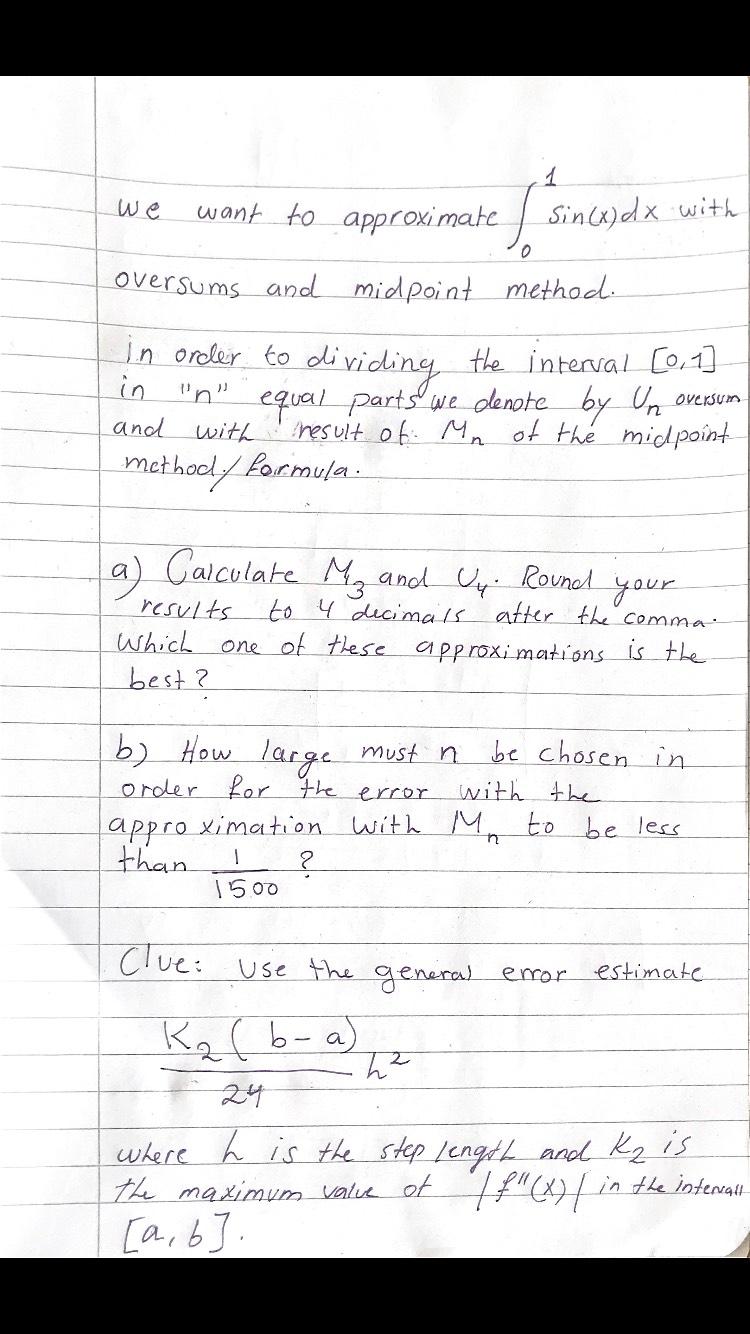 We want to approximate ∫₀¹ sin(x)dx with
oversums and midpoint method.
in order to dividing the interval [0,1]
in "n" equal parts we denote by Un oversum
and with result of Mn of the midpoint
method/formula.
a) Calculate M₃ and U₄. Round your
results to 4 decimals after the comma.
Which one of these approximations is the
best?
b) How large must n be chosen in
order for the error with the
approximation with Mn to be less
than 1/1500 ?
Clue: Use the general error estimate
K₂(b-a)/24 h²
where h is the step length and K₂ is
the maximum value of |f"(x)| in the intervall
[a,b].